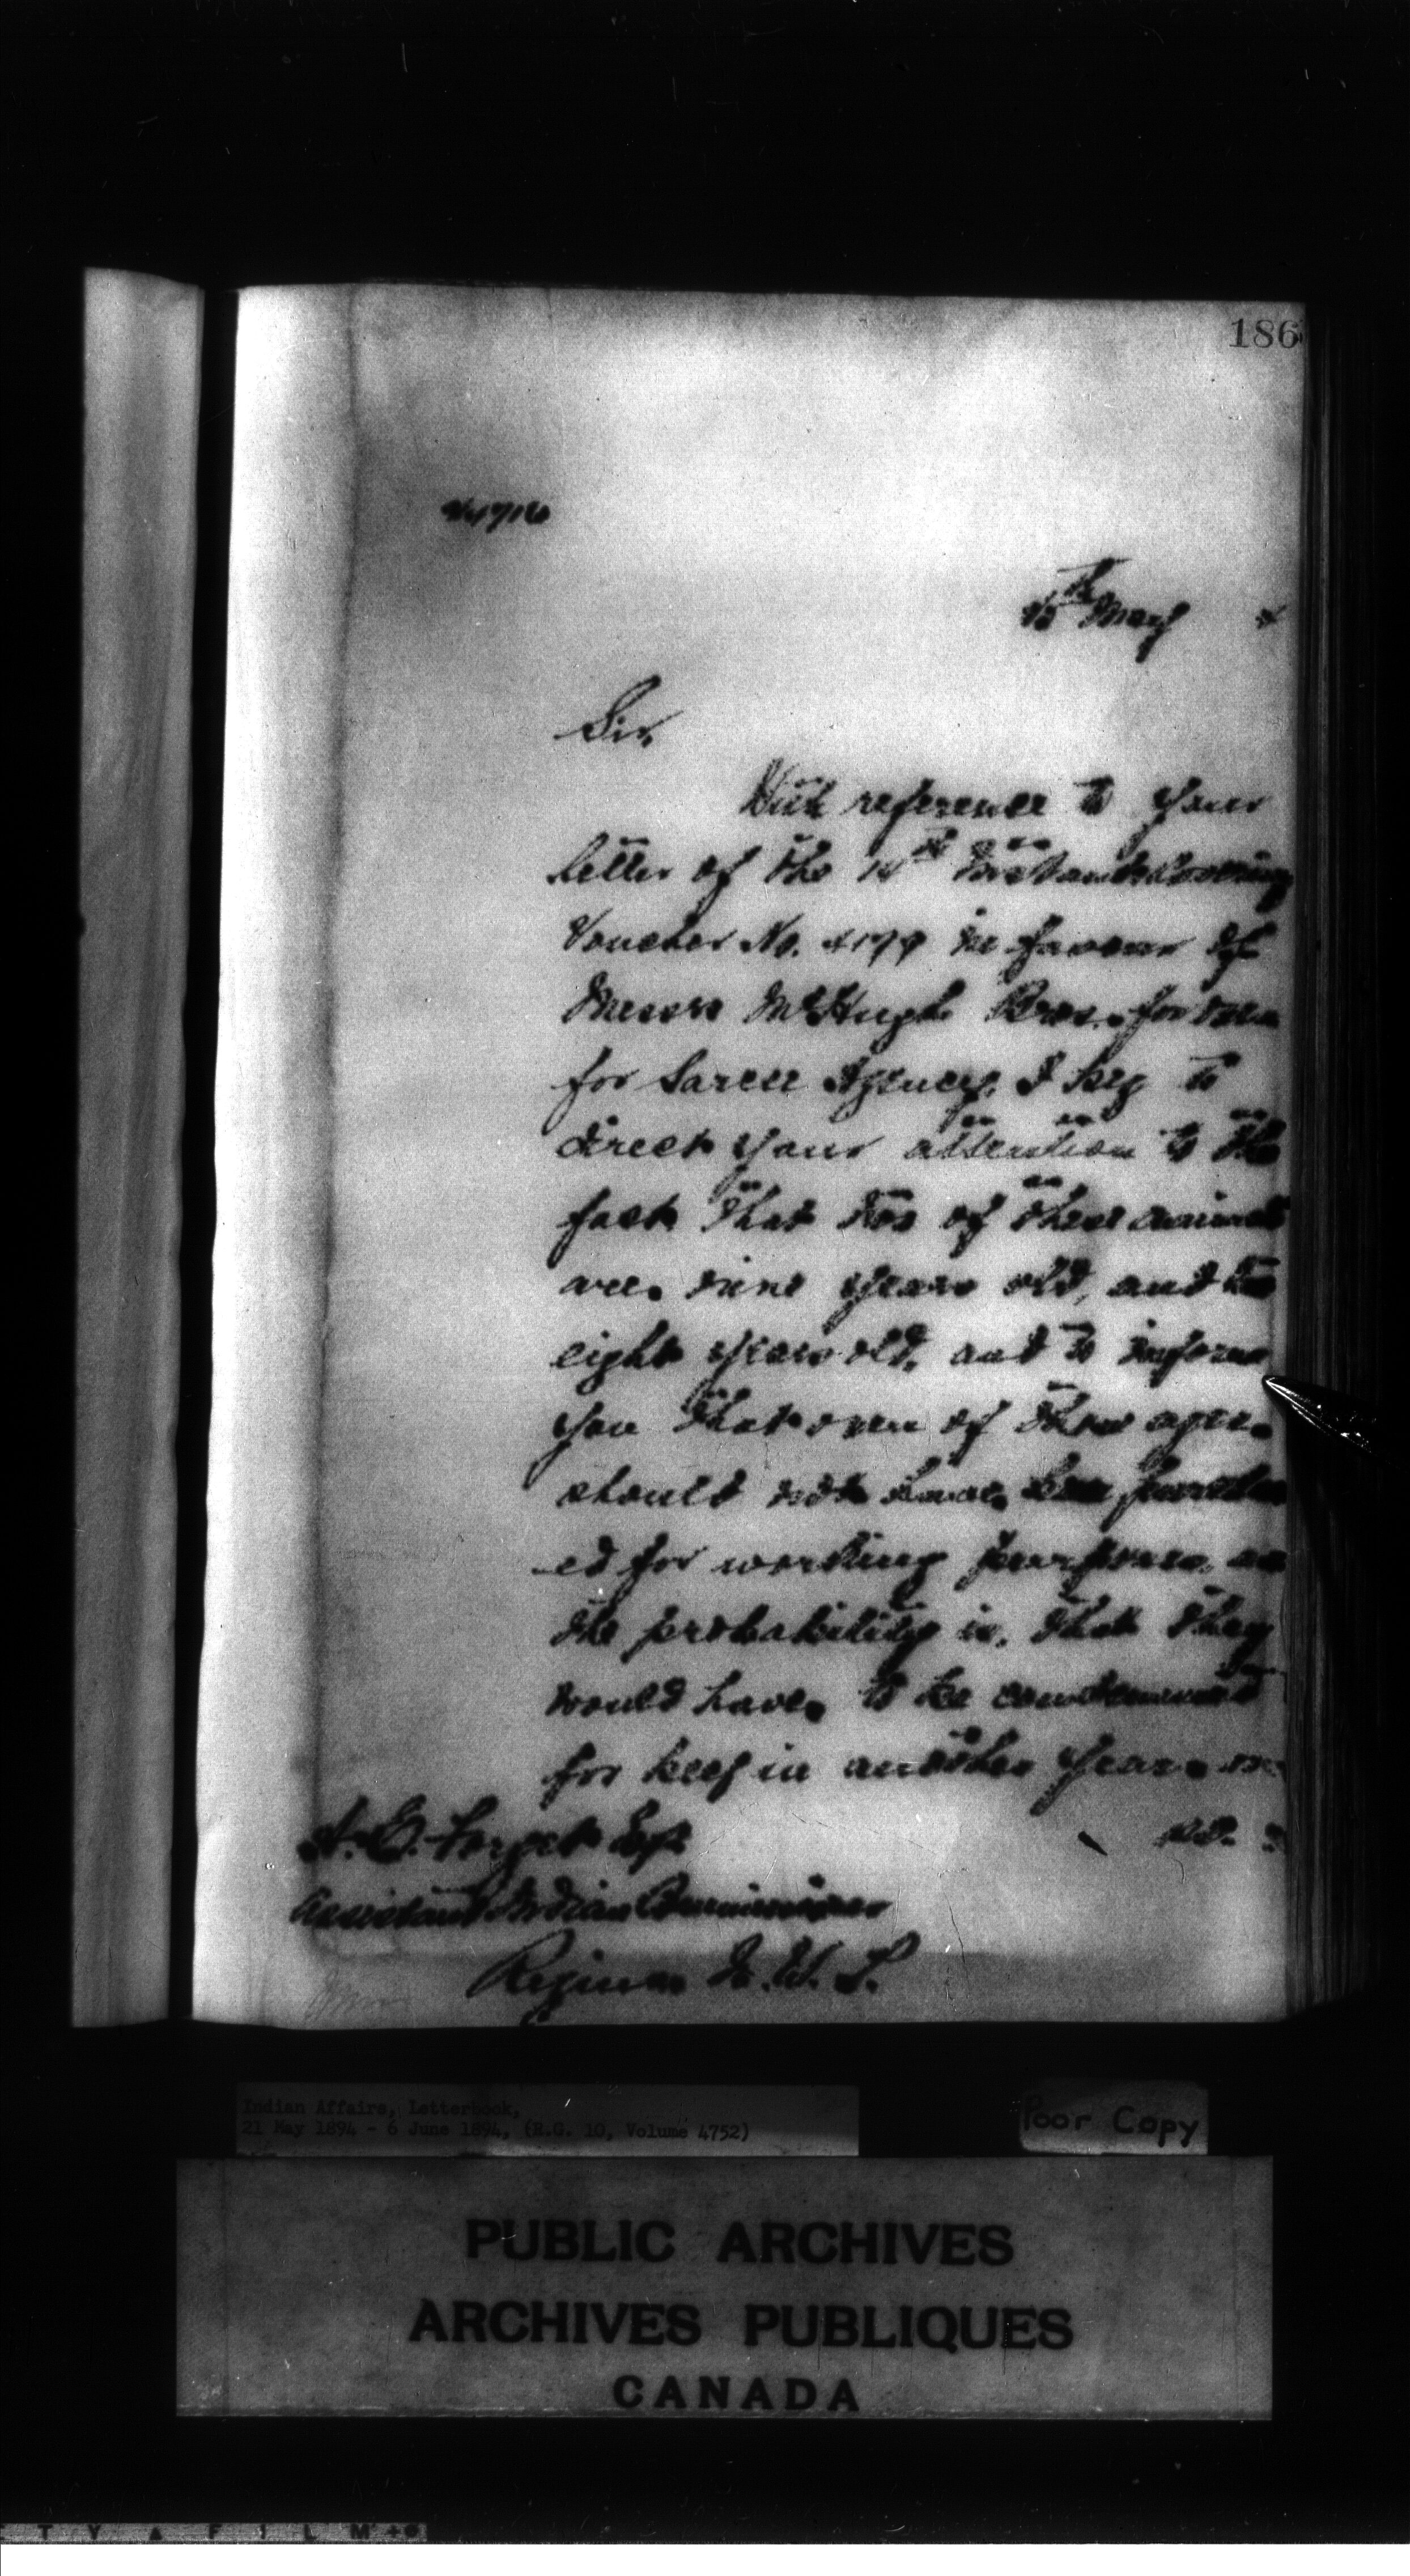 186
May 4
Sir,
With reference to your
letter of the instant covering
Voucher No. in favour of
Messrs McHugh Bros. for oxen
for Sarcee Agency, I beg to
direct your attention to the
fact that two of these animals
are nine years old, and two
eight years old, and to inform
you that oxen of these ages
should not have been purchas
ed for working purposes, as
the probability is, that they
would have to be condemned
for beef in another year or
A. E. Forget Esq.
Assistant Indian Commissioner
Regina N. W. T.
Indian Affairs, Letterbook,
21 May 1894 - 6 June 1894, (R.G. 10, Volume 4752)
Poor Copy
PUBLIC ARCHIVES
ARCHIVES PUBLIQUES
CANADA